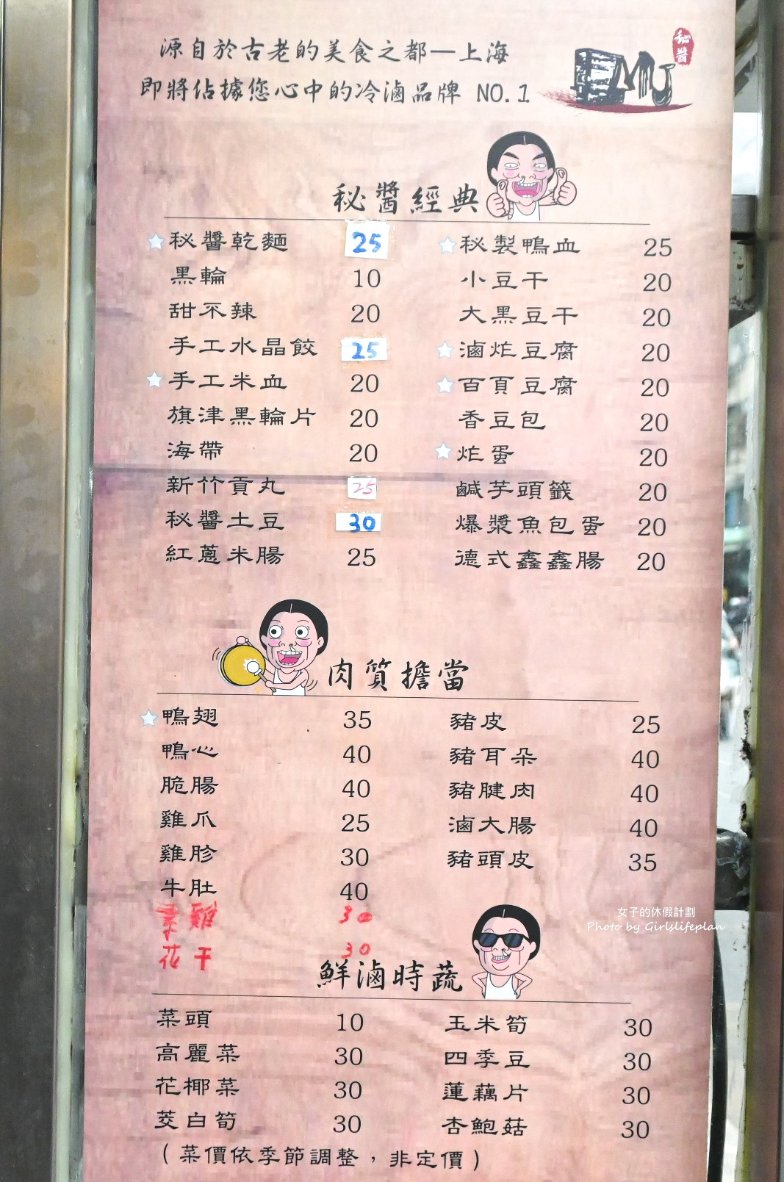 源自於古老的美食之都—上海
即將佔據您心中的冷滷品牌 NO.1
秘醬
秘醬經典
秘醬乾麵 25
黑輪 10
甜不辣 20
手工水晶餃 25
手工米血 20
旗津黑輪片 20
海帶 20
新竹貢丸 25
秘醬土豆 30
紅蔥米腸 25
秘製鴨血 25
小豆干 20
大黑豆干 20
滷炸豆腐 20
百頁豆腐 20
香豆包 20
炸蛋 20
鹹芋頭籤 20
爆漿魚包蛋 20
德式鑫鑫腸 20
肉質擔當
鴨翅 35
鴨心 40
脆腸 40
雞爪 25
雞胗 30
牛肚 40
素雞 30
花干 30
豬皮 25
豬耳朵 40
豬腱肉 40
滷大腸 40
豬頭皮 35
女子的休假計劃
Photo by Girlslifeplan
鮮滷時蔬
菜頭 10
高麗菜 30
花椰菜 30
茭白筍 30
玉米筍 30
四季豆 30
蓮藕片 30
杏鮑菇 30
(菜價依季節調整，非定價)